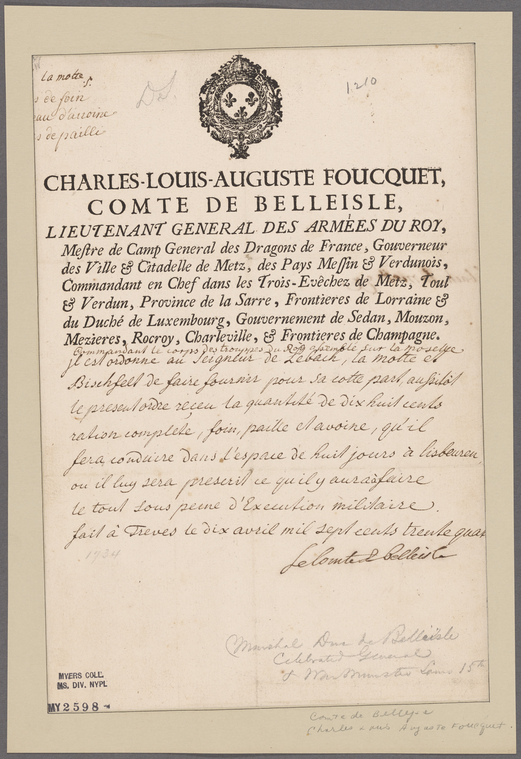 la motte
de foin
d'avoine
de paille
DS.
1210
CHARLES-LOUIS-AUGUSTE FOUCQUET,
COMTE DE BELLEISLE,
LIEUTENANT GENERAL DES ARMÉES DU ROY,
Mestre de Camp General des Dragons de France, Gouverneur
des Ville & Citadelle de Metz, des Pays Messin & Verdunois,
Commandant en Chef dans les Trois-Evêchez de Metz, Toul
& Verdun, Province de la Sarre, Frontieres de Lorraine &
du Duché de Luxembourg, Gouvernement de Sedan, Mouzon,
Mezieres, Rocroy, Charleville, & Frontieres de Champagne.
Commandant le corps des trouppes du Roy assemblé sur la moselle
Il est ordonné au Seigneur de Lebach, la motte et
Bischfelt de faire fournir pour sa cotte part, aussitôt
le present ordre receu la quantité de dix huit cents
ration complete, foin, paille et avoine, qu'il
fera conduire dans l'espace de huit jours à
ou il luy sera prescrit ce qu'il y aura à faire
le tout sous peine d'Execution militaire.
fait à Treves le dix avril mil sept cents trente quat
1734
Le Comte de belleisle
Marshal Duc de Belleisle
Celebrated General
& War Minister Louis 15th
MYERS COLL.
MS. DIV. NYPL
MY 2598
Comte de Belleisle
Charles Louis Auguste Foucquet.